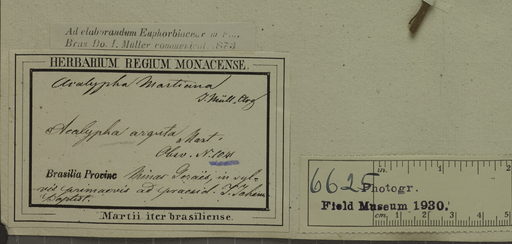 Ad elaborandum Euphorbiaceae in Fl.
Bras. Dr. J. Müller commisi 1873
HERBARIUM REGIUM MONACENSE.
Acalypha Martiana
J. Müll. Arg
Acalypha arguta Mart.
Obsv. N. 1041
Brasilia Provinc Minas Geraës, in syl-
vis primaevis ad praesid. S. Joann.
Baptist.
Martii iter brasiliense.
in. 1 2
6625 Photogr.
Field Museum 1930.
cm. 1 2 3 4 5